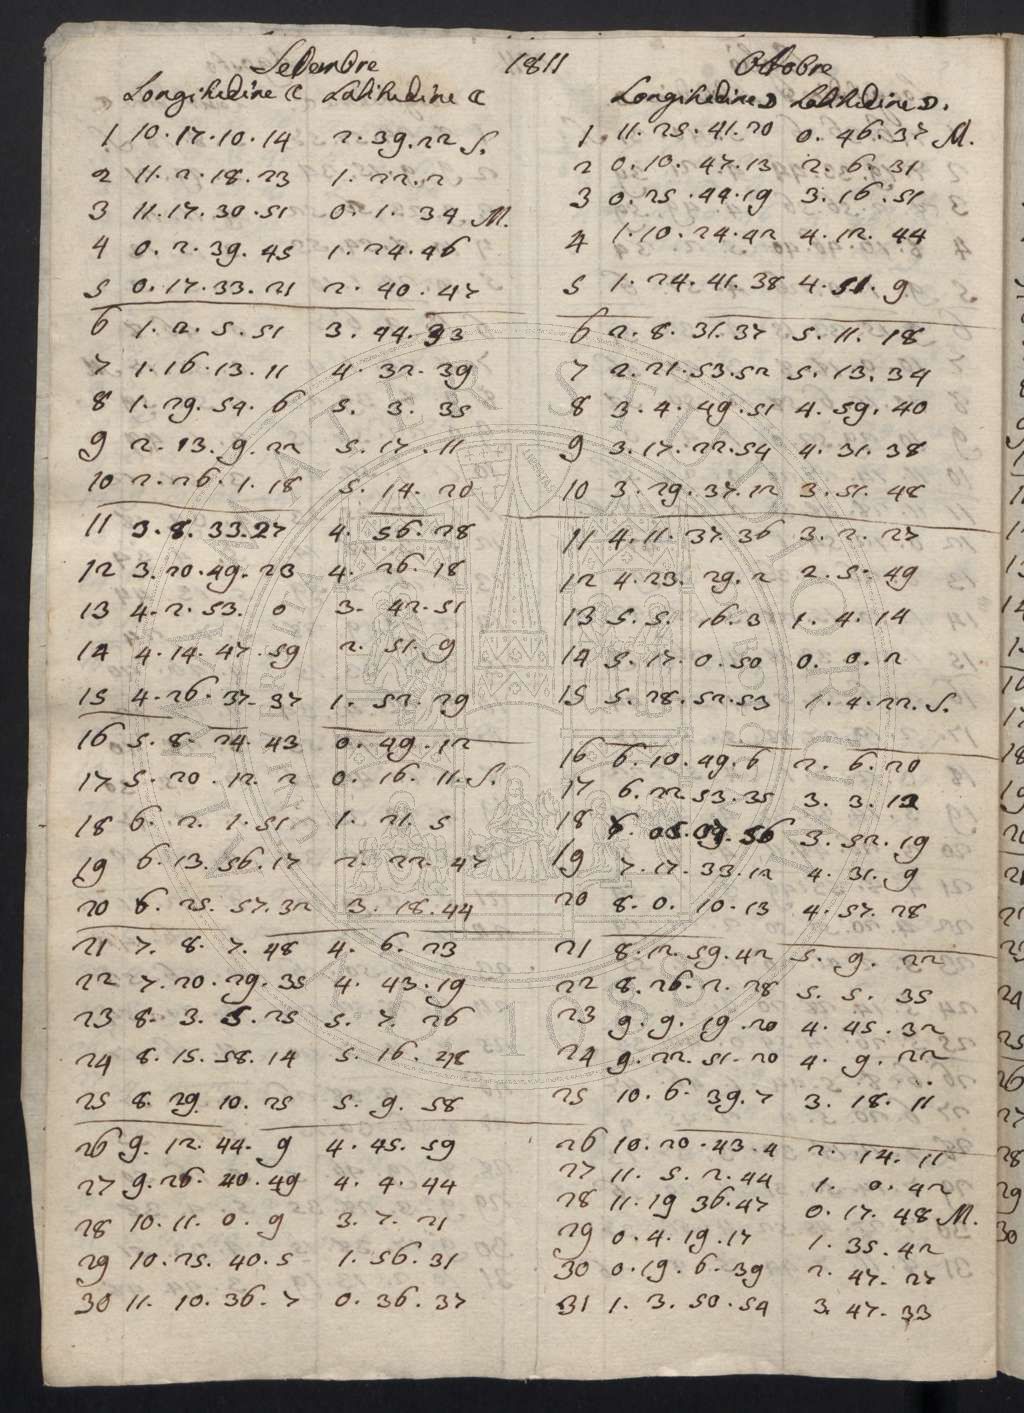 Settembre 1811 Ottobre
Longitudine ☾ Latitudine ☾ Longitudine ☽ Latitudine ☽.
1 10.17.10.14 2.39.22 S. 1 11.25.41.20 0.46.37 M.
2 11.2.18.23 1.22.2 2 0.10.47.13 2.6.31
3 11.17.30.51 0.1.34 M. 3 0.25.44.19 3.16.51
4 0.2.39.45 1.24.46 4 1.10.24.42 4.12.44
5 0.17.33.21 2.40.47 5 1.24.41.38 4.51.9
6 1.2.5.51 3.44.33 6 2.8.31.37 5.11.18
7 1.16.13.11 4.32.39 7 2.21.53.52 5.13.34
8 1.29.54.6 5.3.35 8 3.4.49.51 4.59.40
9 2.13.9.22 5.17.11 9 3.17.22.54 4.31.38
10 2.26.1.18 5.14.20 10 3.29.37.12 3.51.48
11 3.8.33.27 4.56.28 11 4.11.37.36 3.2.27
12 3.20.49.23 4.26.18 12 4.23.29.2 2.5.49
13 4.2.53.0 3.42.51 13 5.5.16.3 1.4.14
14 4.14.47.59 2.51.9 14 5.17.0.50 0.0.2
15 4.26.37.37 1.52.29 15 5.28.52.53 1.4.22.S.
16 5.8.24.43 0.49.12 16 6.10.49.6 2.6.20
17 5.20.12.2 0.16.11.S. 17 6.22.53.35 3.3.12
18 6.2.1.51 1.21.5 18 3.52.19
19 6.13.56.17 2.22.47 19 7.17.33.12 4.31.9
20 6.25.57.32 3.18.44 20 8.0.10.13 4.57.28
21 7.8.7.48 4.6.23 21 8.12.59.42 5.9.22
22 7.20.29.35 4.43.19 22 8.26.2.28 5.5.35
23 8.3.5.25 5.7.26 23 9.9.19.20 4.45.32
24 8.15.58.14 5.16.28 24 9.22.51.20 4.9.22
25 8.29.10.25 5.9.58 25 10.6.39.7 3.18.11
26 9.12.44.9 4.45.59 26 10.20.43.4 2.14.11
27 9.26.40.49 4.4.44 27 11.5.2.44 1.0.42
28 10.11.0.9 3.7.21 28 11.19 36.47 0.17.48 M.
29 10.25.40.5 1.56.31 29 0.4.19.17 1.35.42
30 11.10.36.7 0.36.37 30 0.19.6.39 2.47.27
31 1.3.50.54 3.47.33